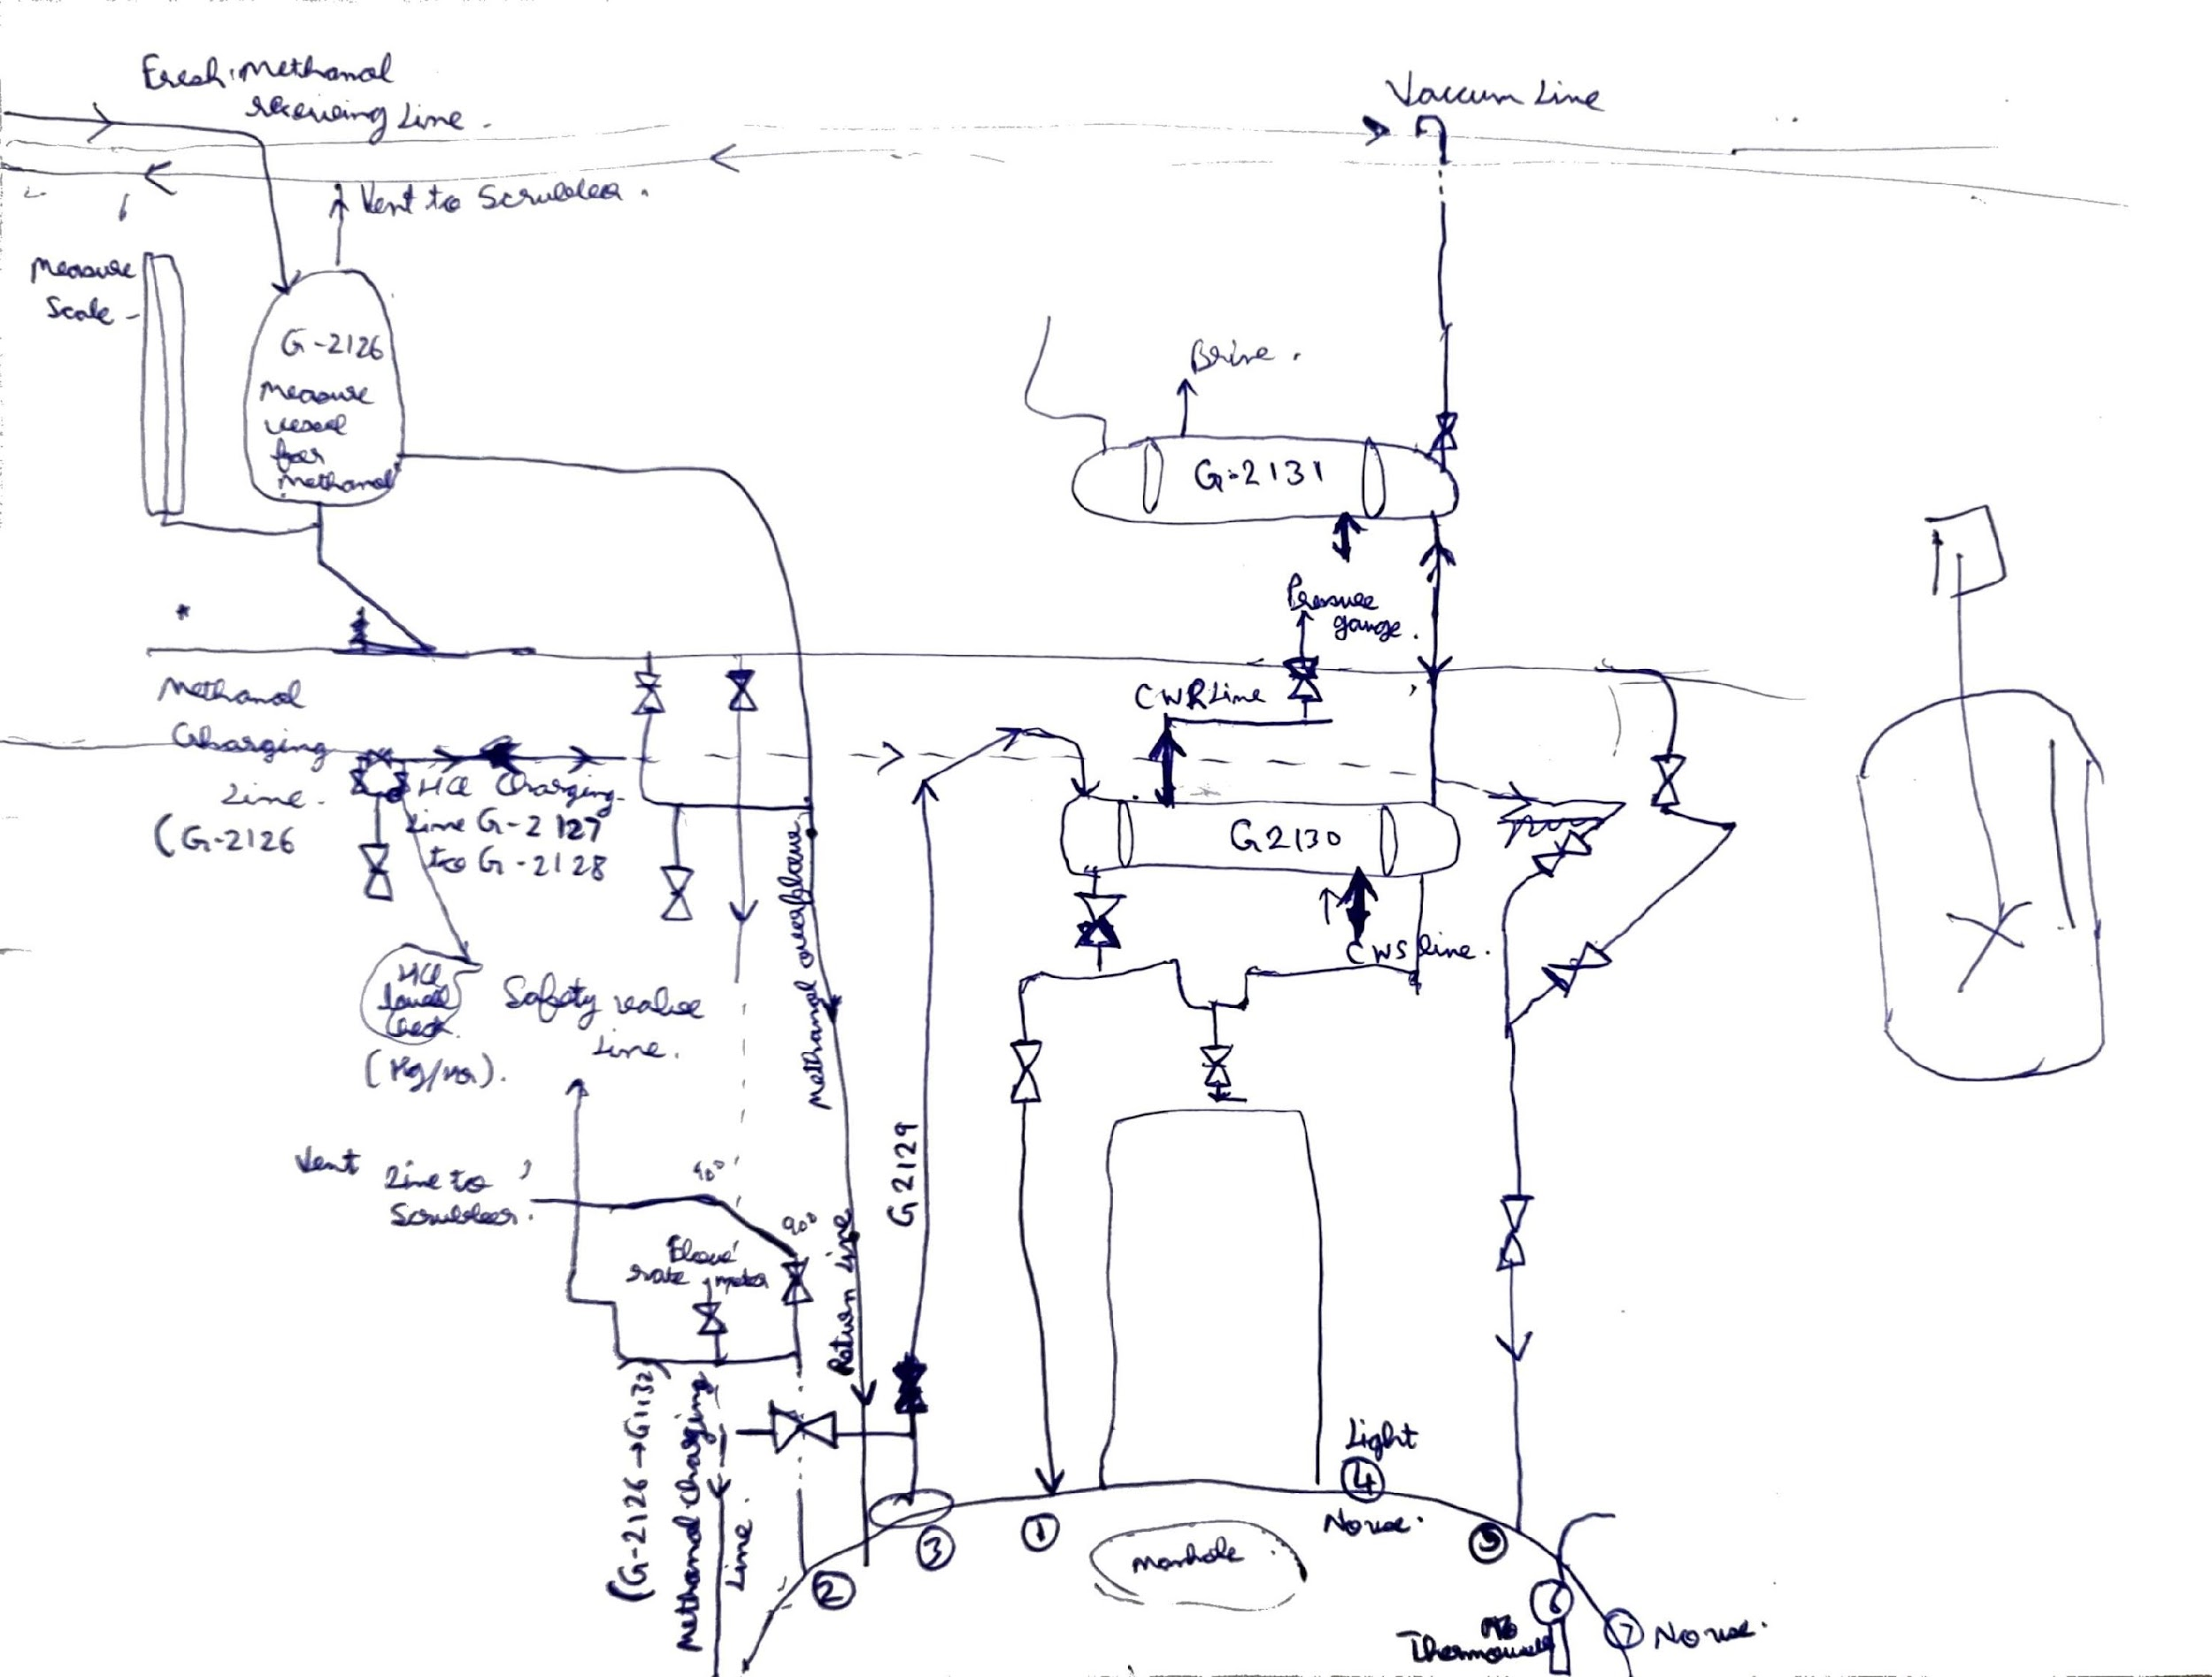 Fresh Methanol
receiving Line.
Vaccum Line
Vent to Scrubber.
Measure
Scale -
G-2126
Measure
vessel
for
methanol
Brine.
G-2131
Pressure
gauge.
*
Methanol
Charging
Line.
(G-2126
HCl Charging
Line G-2127
to G-2128
CWR Line
G2130
CWS line.
HCl
Check
(Kg/hr).
Safety valve
Line.
Methanol overflow
Return Line
G2129
Vent Line to
Scrubber.
90°
90°
rate meter
(G-2126→G1132)
Methanol charging
Line.
Light
4
None.
1
2
3
5
Manhole
6
Thermowell
7 None.